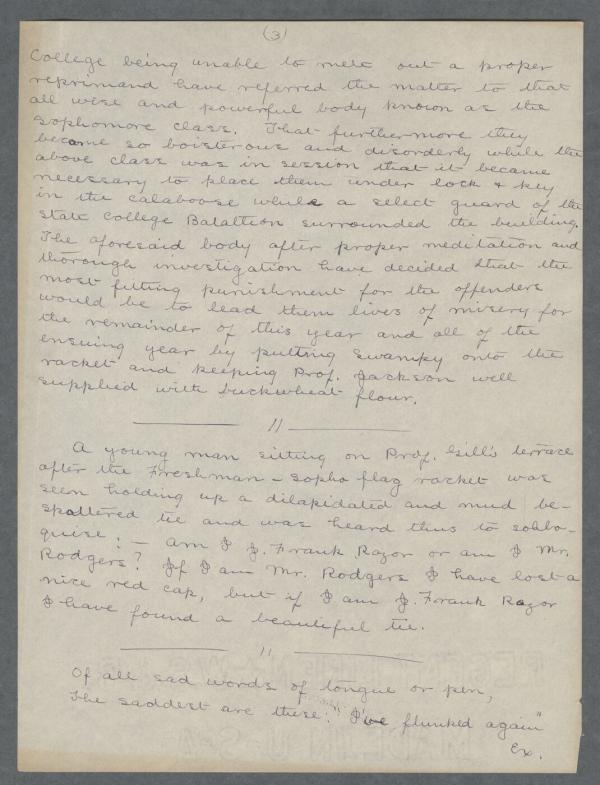 (3)
College being unable to mete out a proper
reprimand have referred the matter to that
all wise and powerful body known as the
Sophomore class. That furthermore they
became so boisterous and disorderly while the
above class was in session that it became
necessary to place them under lock & key
in the calaboose while a select guard of the
State College Bataltion surrounded the building.
The aforesaid body after proper meditation and
thorough investigation have decided that the
most fitting punishment for the offenders
would be to lead them lives of misery for
the remainder of this year and all of the
ensuing year by putting Swampy onto the
racket and keeping Prof. Jackson well
supplied with buckwheat flour.
//
A young man sitting on Prof. Gill's terrace
after the Freshman - Sopho flag racket was
seen holding up a dilapidated and mud be-
spattered tie and was heard thus to solilo-
quise: - Am I J. Frank Razor or am I Mr.
Rodgers? If I am Mr. Rodgers I have lost a
nice red cap, but if I am J. Frank Razor
I have found a beautiful tie.
//
Of all sad words of tongue or pen,
The saddest are these: "I've flunked again"
Ex.